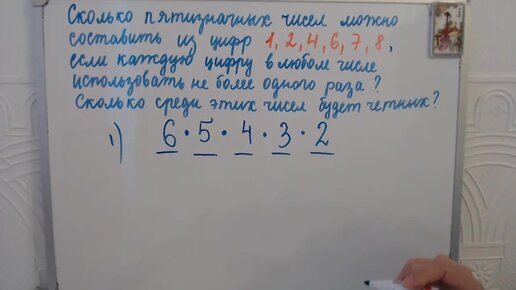 Сколько пятизначных чисел можно
составить из цифр 1, 2, 4, 6, 7, 8,
если каждую цифру в любом числе
использовать не более одного раза?
Сколько среди этих чисел будет четных?
1) 6 · 5 · 4 · 3 · 2